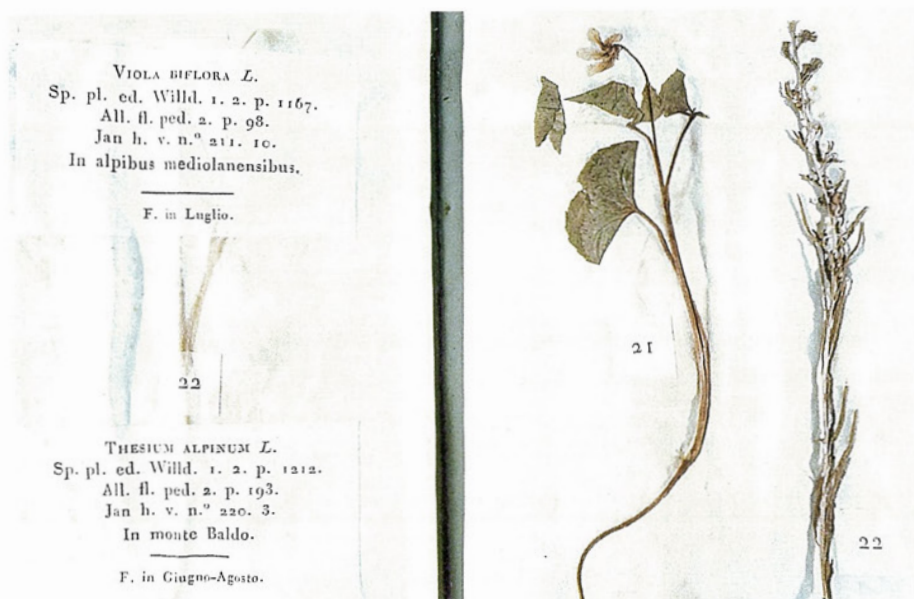 VIOLA BIFLORA L.
Sp. pl. ed. Willd. 1. 2. p. 1167.
All. fl. ped. 2. p. 98.
Jan h. v. n.º 211. 10.
In alpibus mediolanensibus.
F. in Luglio.
22
THESIUM ALPINUM L.
Sp. pl. ed. Willd. 1. 2. p. 1212.
All. fl. ped. 2. p. 193.
Jan h. v. n.º 220. 3.
In monte Baldo.
F. in Giugno-Agosto.
21
22